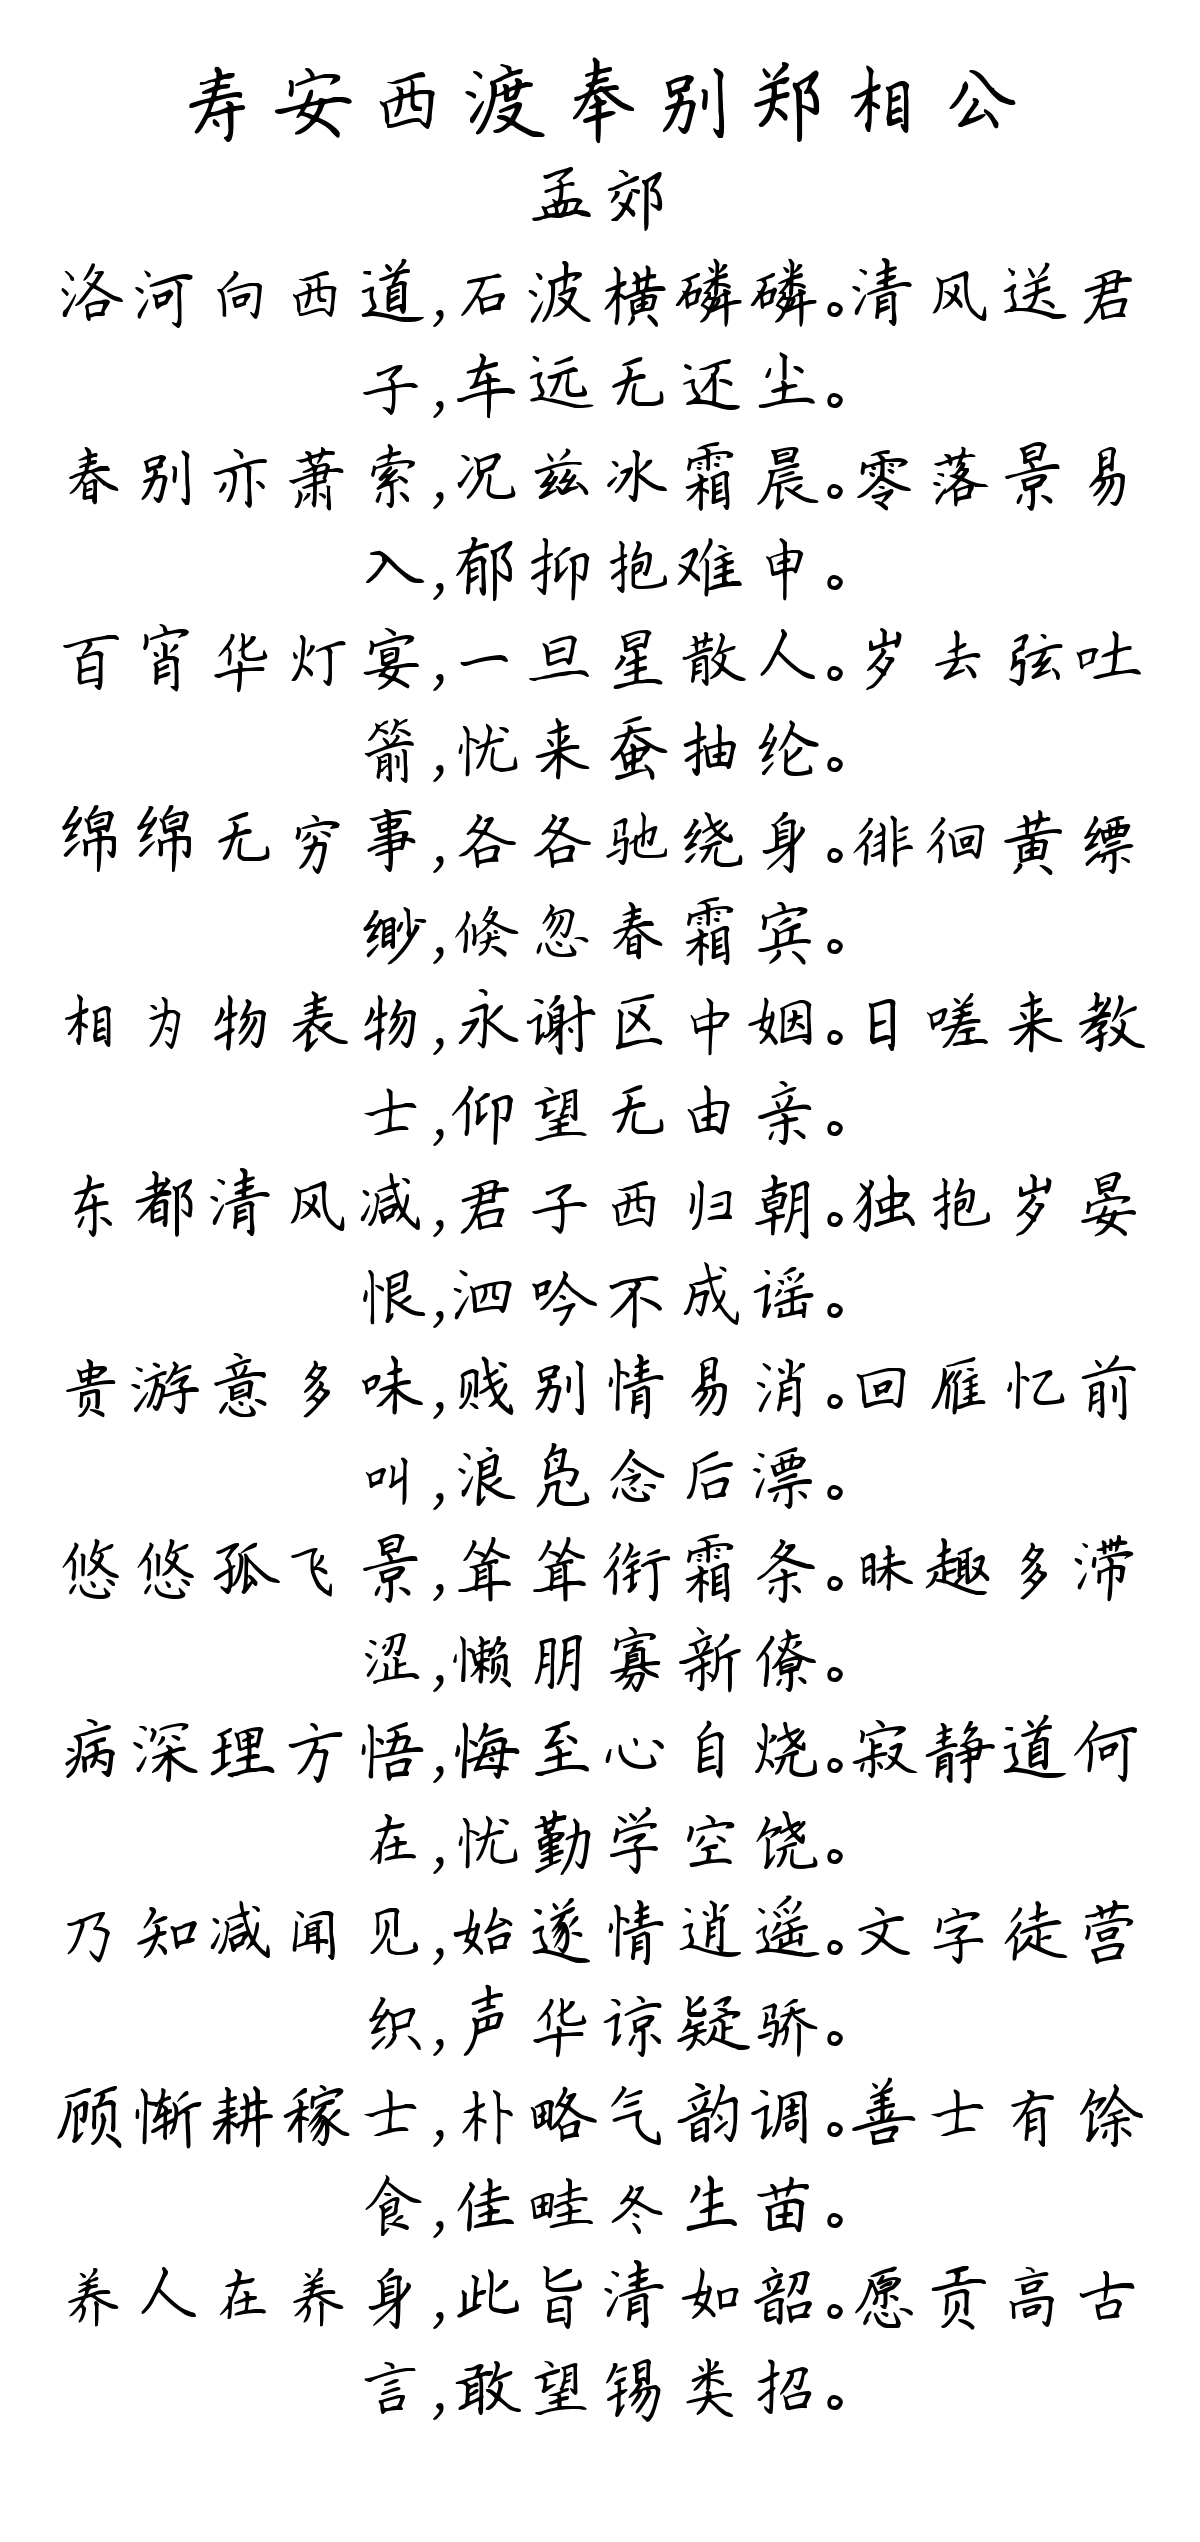 寿安西渡奉别郑相公
孟郊
洛河向西道,石波横磷磷。清风送君
子,车远无还尘。
春别亦萧索,况兹冰霜晨。零落景易
入,郁抑抱难申。
百宵华灯宴,一旦星散人。岁去弦吐
箭,忧来蚕抽纶。
绵绵无穷事,各各驰绕身。徘徊黄缥
缈,倏忽春霜宾。
相为物表物,永谢区中姻。日嗟来教
士,仰望无由亲。
东都清风减,君子西归朝。独抱岁晏
恨,泗吟不成谣。
贵游意多味,贱别情易消。回雁忆前
叫,浪凫念后漂。
悠悠孤飞景,耸耸衔霜条。昧趣多滞
涩,懒朋寡新僚。
病深理方悟,悔至心自烧。寂静道何
在,忧勤学空饶。
乃知减闻见,始遂情逍遥。文字徒营
织,声华谅疑骄。
顾惭耕稼士,朴略气韵调。善士有馀
食,佳畦冬生苗。
养人在养身,此旨清如韶。愿贡高古
言,敢望锡类招。